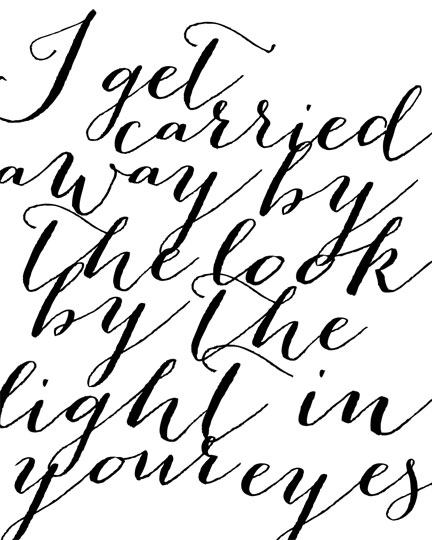 I get
carried
away by
the look
by the
light in
your eyes